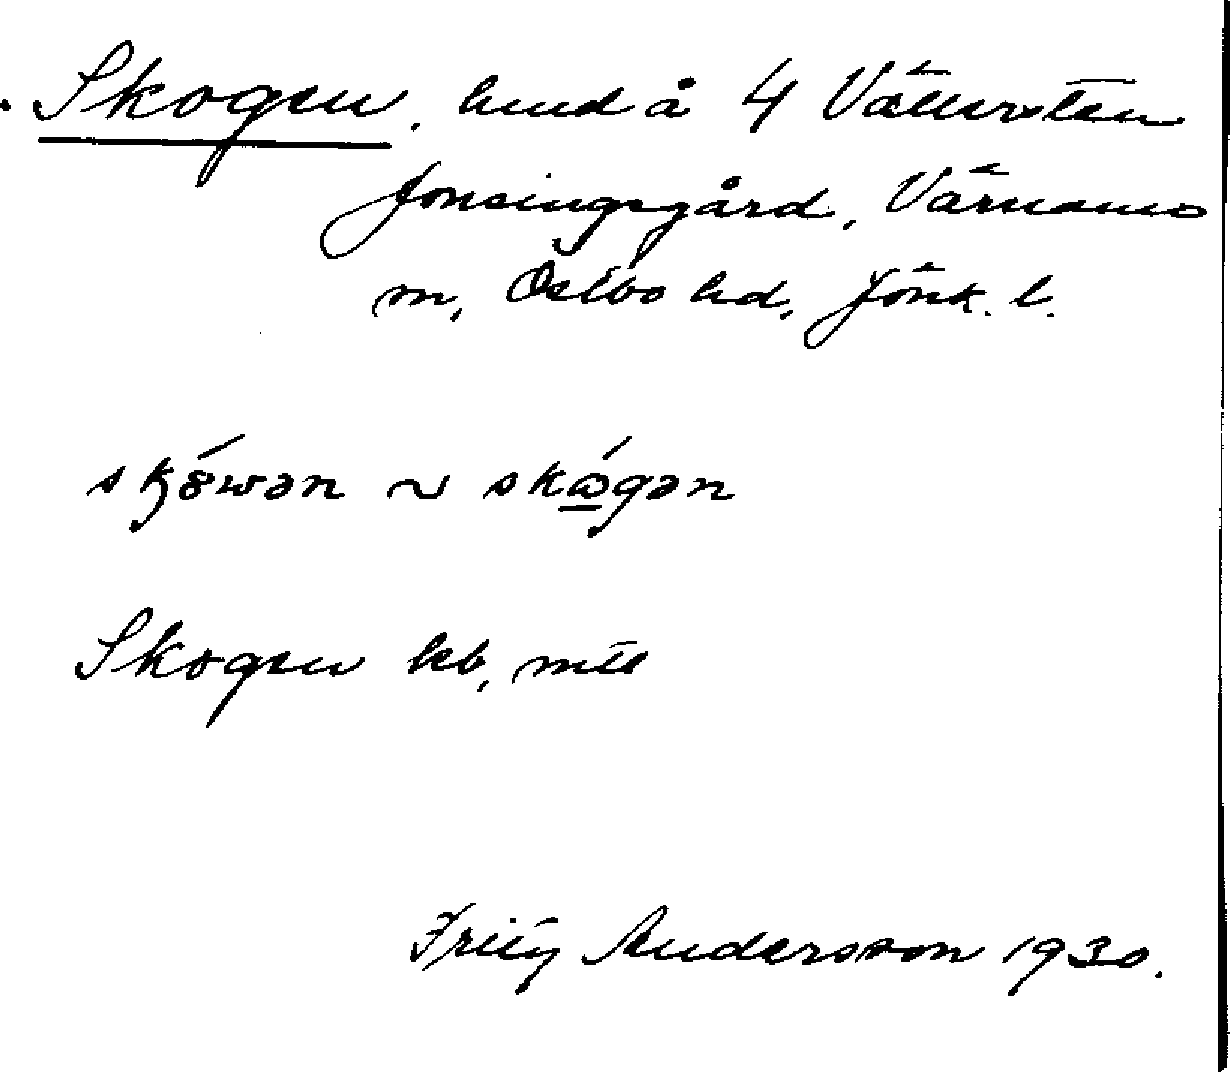 Skogen, lund å 4 Vällersten
Jonsingsgård, Värnamo
sn, Östbo hd, Jönk. l.
skówən ~ skǻgən
Skogen kb,
Fritz Andersson 1930.